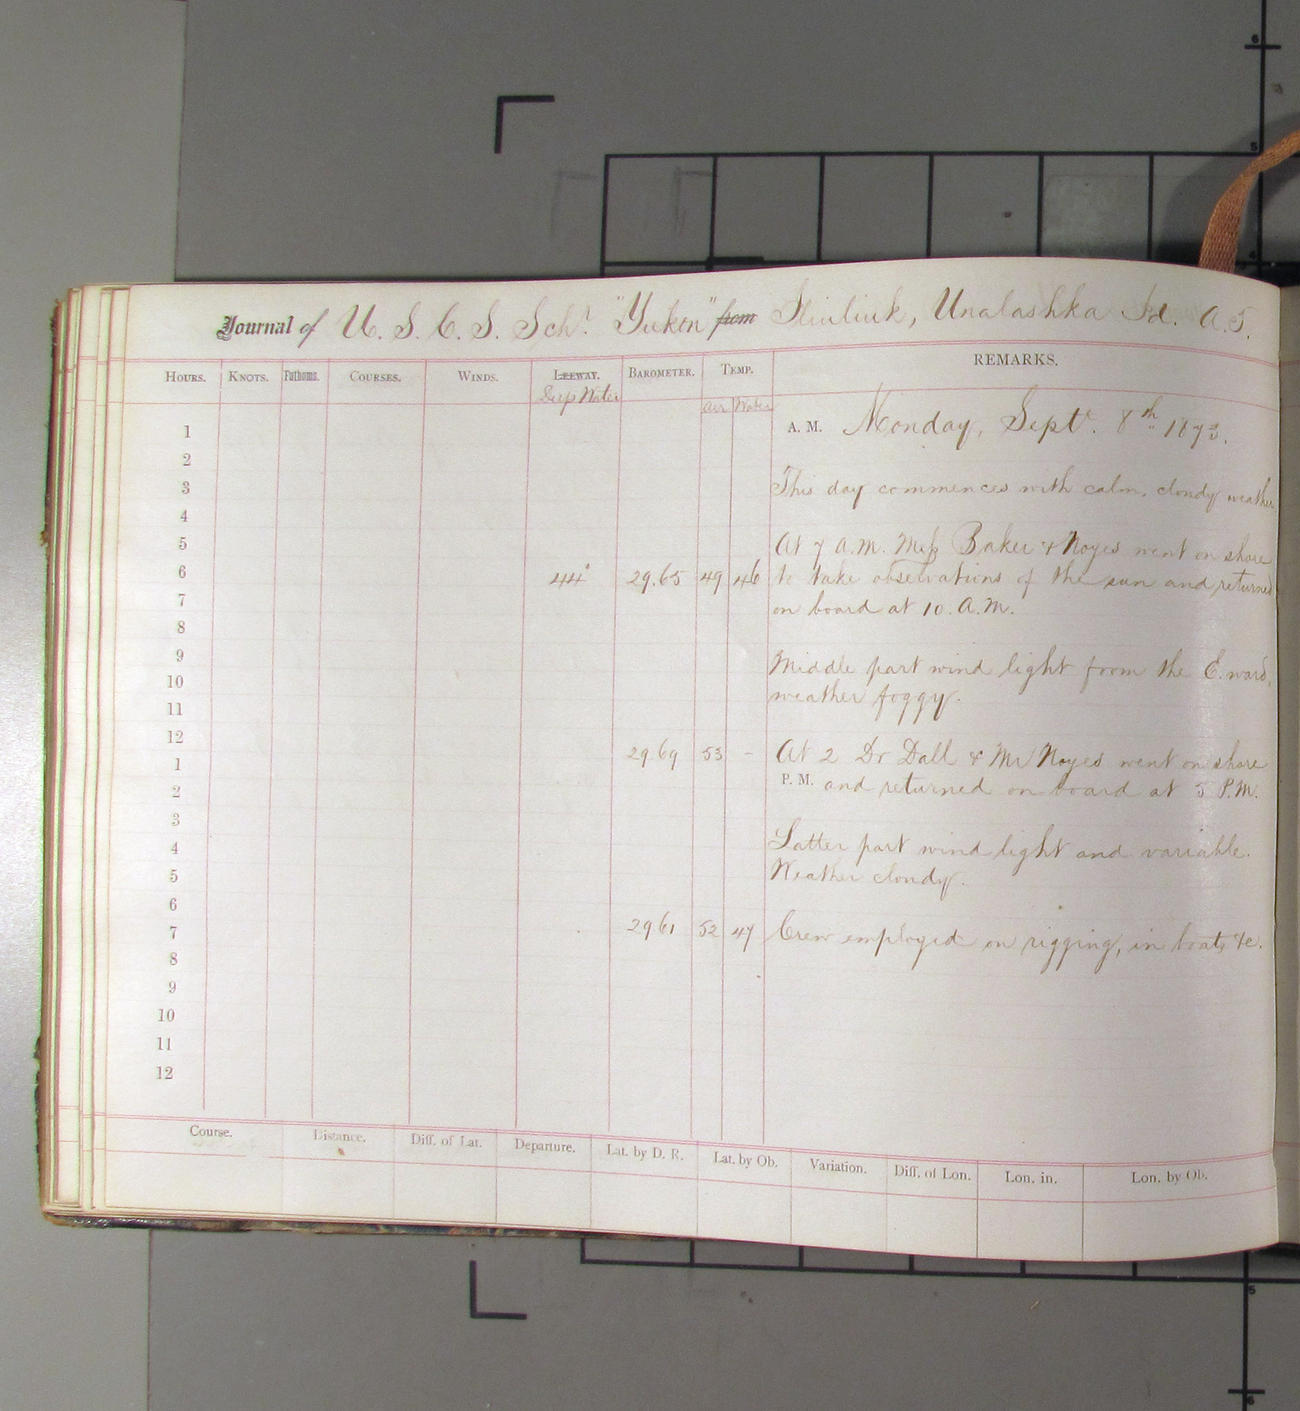 Journal of U. S. C. S. Schr. "Yukon" from Iliuliuk, Unalashka Id. A. T.
HOURS. KNOTS. Fathoms. COURSES. WINDS. LEEWAY. BAROMETER. TEMP. REMARKS.
Deep Water Air Water
1 A. M. Monday, Septr. 8th 1873.
2
3 This day commences with calm, cloudy weather
4
5 At 7 A.M. Mess Baker & Noyes went on shore
6 44° 29.65 49 46 to take observations of the sun and returned
7 on board at 10. A.M.
8
9 Middle part wind light from the E.ward,
10 weather foggy.
11
12 29.69 53 - At 2 Dr Dall & Mr Noyes went on shore
1 P. M. and returned on board at 5 P.M.
2
3
4 Latter part wind light and variable.
5 Weather cloudy.
6
7 29.61 52 47 Crew employed on rigging, in boats &c.
8
9
10
11
12
Course. Distance. Diff. of Lat. Departure. Lat. by D. R. Lat. by Ob. Variation. Diff. of Lon. Lon. in. Lon. by Ob.
6
5
4
5
6